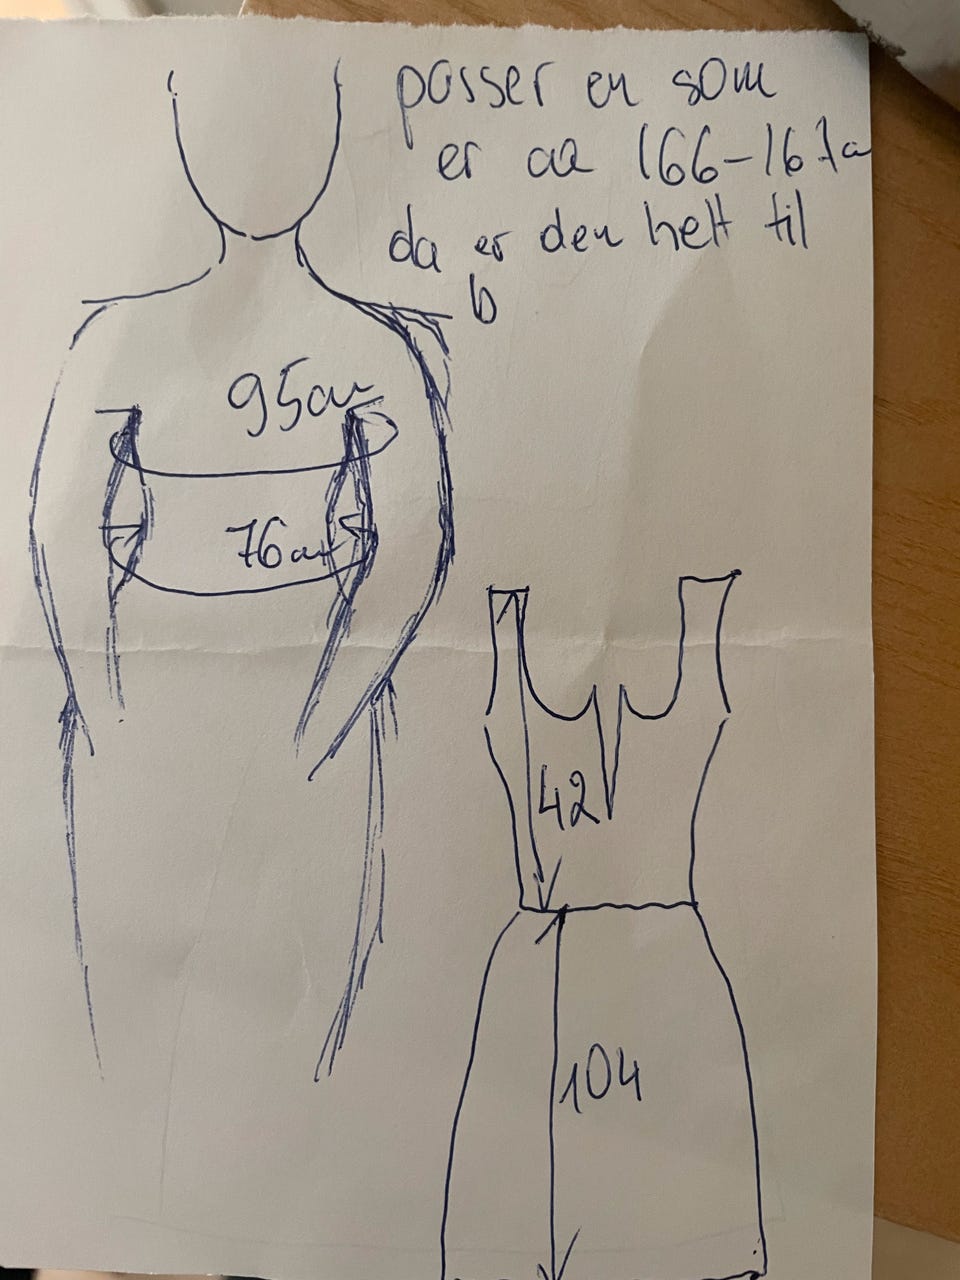 passer en som
er ca 166-167c
da er den helt til
b
95cm
76cm
42
104